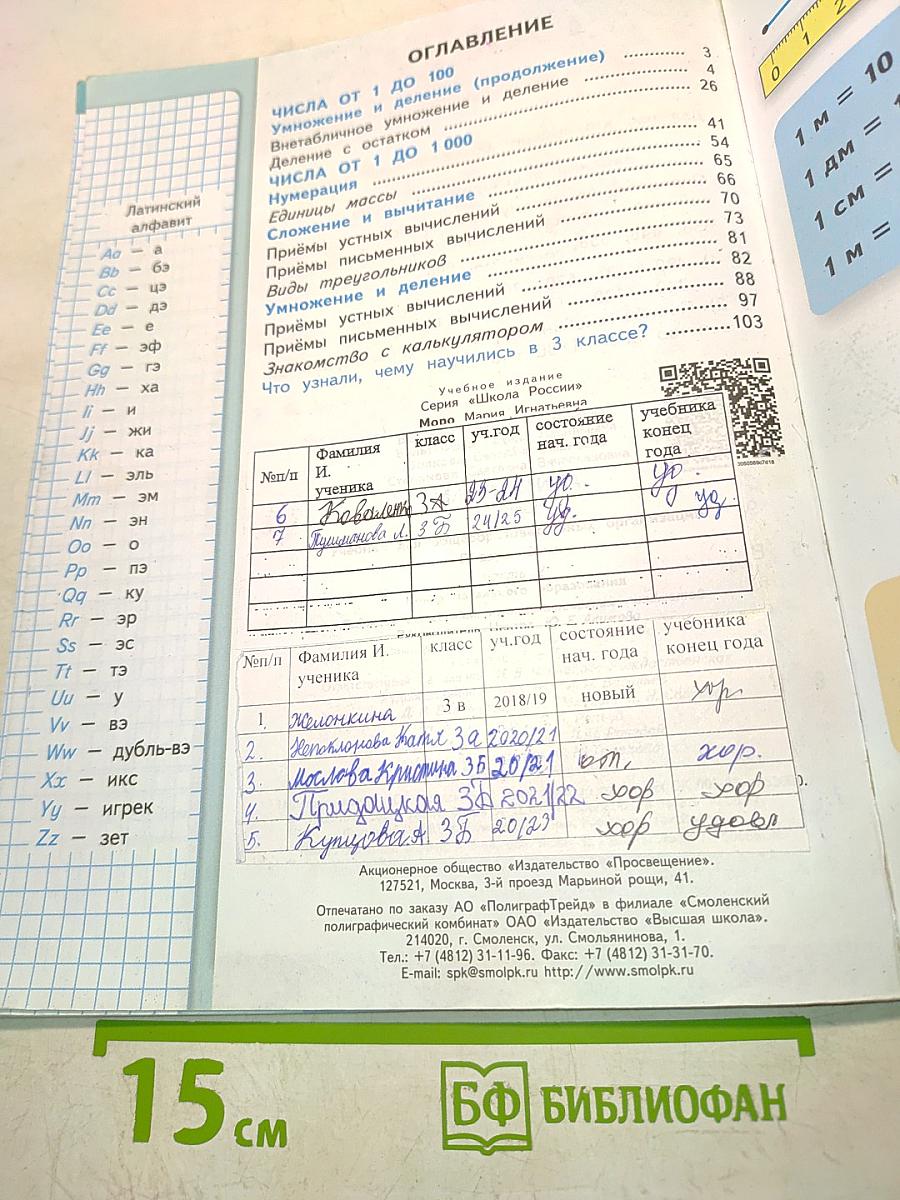 Латинский
алфавит
Aa — а
Bb — бэ
Cc — цэ
Dd — дэ
Ee — е
Ff — эф
Gg — гэ
Hh — ха
Ii — и
Jj — жи
Kk — ка
Ll — эль
Mm — эм
Nn — эн
Oo — о
Pp — пэ
Qq — ку
Rr — эр
Ss — эс
Tt — тэ
Uu — у
Vv — вэ
Ww — дубль-вэ
Xx — икс
Yy — игрек
Zz — зет
ОГЛАВЛЕНИЕ
ЧИСЛА ОТ 1 ДО 100
Умножение и деление (продолжение) ............ 3
Внетабличное умножение и деление ............ 4
Деление с остатком ............ 26
ЧИСЛА ОТ 1 ДО 1 000
Нумерация ............ 41
Единицы массы ............ 54
Сложение и вычитание ............ 65
Приёмы устных вычислений ............ 66
Приёмы письменных вычислений ............ 70
Виды треугольников ............ 73
Умножение и деление ............ 81
Приёмы устных вычислений ............ 82
Приёмы письменных вычислений ............ 88
Знакомство с калькулятором ............ 97
Что узнали, чему научились в 3 классе? ............ 103
Учебное издание
Серия «Школа России»
Моро Мария Игнатьевна
№п/п Фамилия И. ученика класс уч.год состояние нач. года учебника конец года
6 Коваленко 3А 23-24 уд. уд.
7 Пушманова Л. 3Б 24/25 уд. уд.
№п/п Фамилия И. ученика класс уч.год состояние нач. года учебника конец года
1. Желонкина 3 в 2018/19 новый хор.
2. Непоклонова Катя 3а 2020/21
3. Маслова Кристина 3Б 20/21 от. хор.
4. 2021/22 хор хор
5. Купцова А 3Б 20/23 хор удовл
Акционерное общество «Издательство «Просвещение».
127521, Москва, 3-й проезд Марьиной рощи, 41.
Отпечатано по заказу АО «ПолиграфТрейд» в филиале «Смоленский
полиграфический комбинат» ОАО «Издательство «Высшая школа».
214020, г. Смоленск, ул. Смольянинова, 1.
Тел.: +7 (4812) 31-11-96. Факс: +7 (4812) 31-31-70.
E-mail: spk@smolpk.ru http://www.smolpk.ru
0 1 2
1 м = 10
1 дм = 1
1 см =
1 м =
15 см
БФ БИБЛИОФАН